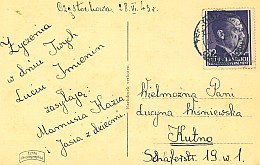 Częstochowa, 28.VI.43r.
Życzenia
w dniu Twych
Luciu Imienin
zasyłają:
Mamusia Kazia
i Jasia z dziećmi.
Wielmożna Pani
Lucyna Wiśniewska
Kutno
Schäferstr. 19 w. 1.